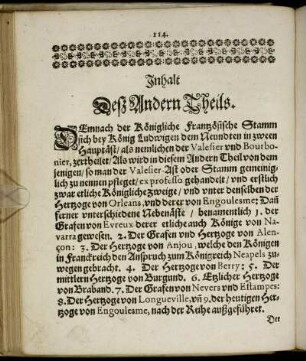 114.
Inhalt
Deß Andern Theils.
DEmnach der Königliche Frantzösische Stamm
sich bey König Ludwigen dem Neundten in zween
Hauptäst/ als nemlichen der Valesier vnd Bourbo-
nier, zertheilet/ Als wird in diesem Andern Theil von dem
jenigen/ so man der Valesier-Ast oder Stamm gemeinig-
lich zu nennen pfleget/ ex professo gehandelt/ vnd erstlich
zwar etliche Königliche Zweige/ vnd vnter denselben der
Hertzoge von Orleans, vnd derer von Engoulesme; Dañ
ferner vnterschiedene Nebenäste/ benamentlich 1. der
Grafen von Evreux derer etliche auch Könige von Na-
varra gewesen. 2. Der Grafen vnd Hertzoge von Alen-
çon: 3. Der Hertzoge von Anjou, welche den Königen
in Franckreich den Anspruch zum Königreich Neapels zu-
wegen gebracht. 4. Der Hertzoge von Berry; 5. Der
mittlern Hertzoge von Burgund. 6. Etzlicher Hertzoge
von Braband. 7. Der Grafen von Nevers vnd Estampes:
8. Der Hertzoge von Longueville, vñ 9. der heutigen Her-
tzoge von Engouleame, nach der Reihe außgeführet.
Der